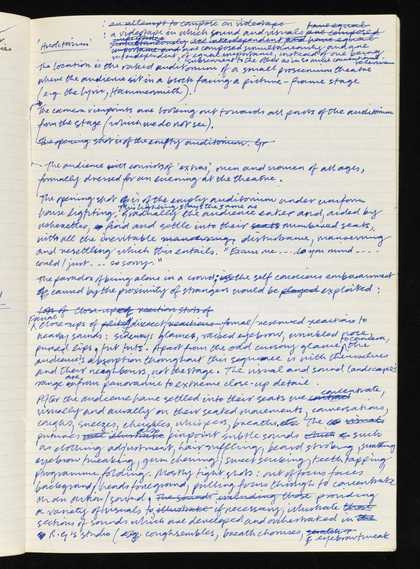 : an attempt to compose on videotape
'Auditorium' : a videotape in which sound and visuals are composed
simultaneously and
independent, of equal importance, instead of one being
subservient to the other as in so much conventional television
The location is the raked auditorium of a small proscenium theatre
where the audience sit in a block facing a picture-frame stage
(e.g. the Lyric, Hammersmith).
The camera viewpoints are looking out towards all parts of the auditorium
from the stage (which we do not see).
The opening shot is of the empty auditorium.
The audience consists of 'extras', men and women of all ages,
formally dressed for an evening at the theatre.
The opening shot is of the empty auditorium under uniform
house lighting, gradually the audience enter and, aided by
usherettes, find and settle into their numbered seats,
with all the inevitable disturbance, manoeuvring
and resettling which this entails. "Excuse me.... do you mind....
could I just... so sorry."
The paradox of being alone in a crowd; the self conscious embarrassment
caused by the proximity of strangers would be exploited:
Close-ups of formal/reserved reactions to
nearby sounds: sideways glances, raised eyebrow, wrinkled nose,
pursed lips, tut tuts. Apart from the odd cursory glance
audience's absorption throughout this sequence is with themselves
and their neighbours, not the stage. The visual and sound landscapes
range from panoramic to extreme close-up detail.
After the audience have settled into their seats we concentrate,
visually and aurally on their seated movements, conversations,
coughs, sneezes, chuckles, whispers, breaths, etc. The
pictures pinpoint subtle sounds such
as clothing adjustments, hair ruffling, beard stroking,
eyebrow twitching, gum chewing, sweet sucking, teeth tapping
programme folding. Mostly tight shots: out of focus faces
background/hands foreground, pulling focus through to concentrate
on an action/sound, providing
a variety of visuals to if necessary, illustrate
sections of sounds which are developed and orchestrated in
R.G.'s studio (e.g. cough ensembles, breath choruses, eyebrow tweak